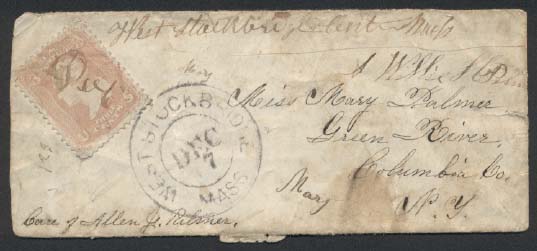 West Stockbridge Center Mass
Pey
May
Miss Mary Palmer
Green River,
Columbia Co.
N. Y.
Mary
WEST STOCKBRIDGE
DEC
7
MASS
Care of Allen J. Palmer.